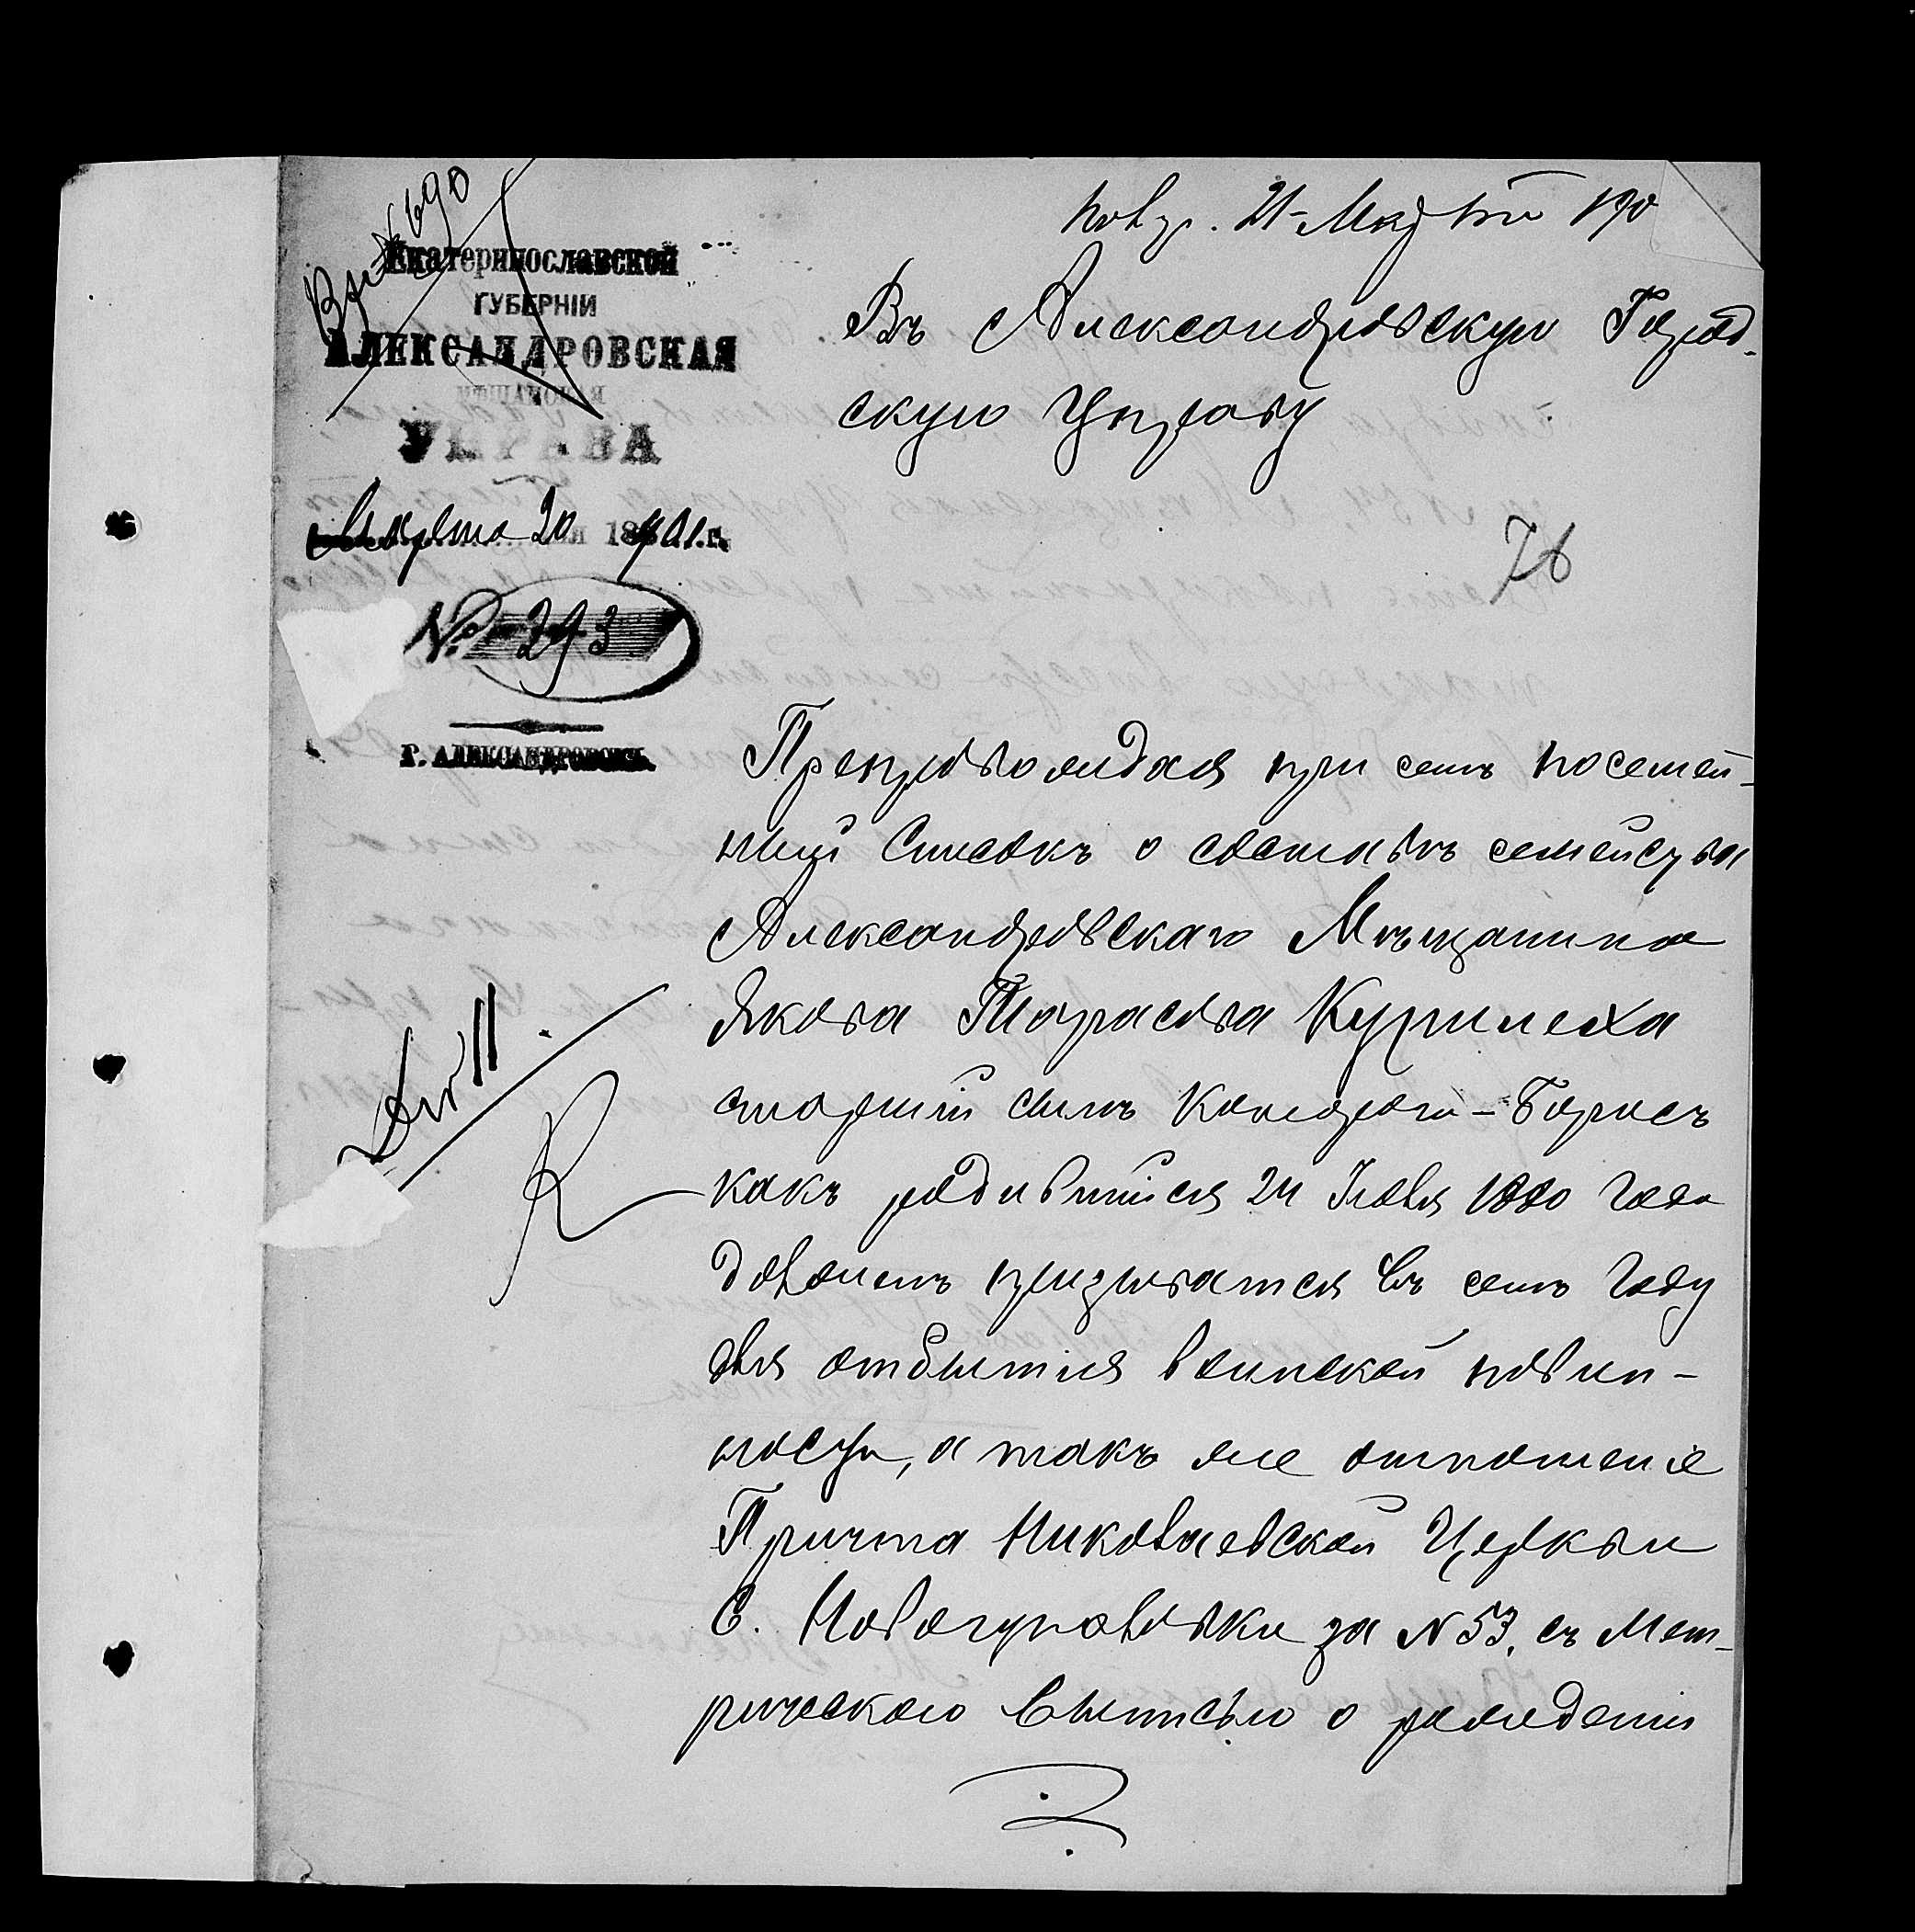 Вх № 690
21 Марта 190
Екатеринославской
ГУБЕРНІИ
АЛЕКСАНДРОВСКАЯ
МѢЩАНСКАЯ
УПРАВА
Марта 20 1901 г.
№ 293
Г. АЛЕКСАНДРОВСКЪ.
Въ Александровскую Город-
скую Управу
76
Препровождая при семъ посемей-
ный Списокъ о составѣ семейства
Александровскаго Мѣщанина
Якова Тарасова Курилеха
старшій сынъ Кондрата-Борисъ
какъ родившійся 24 Іюля 1880 года
долженъ призыватся въ семъ году
для отбытія воинской повин-
ности, а такъ же отношеніе
Причта Николаевской Церкви
С. Новогуполовки за N 53, съ Мет-
рическою Выписью о рожденіи